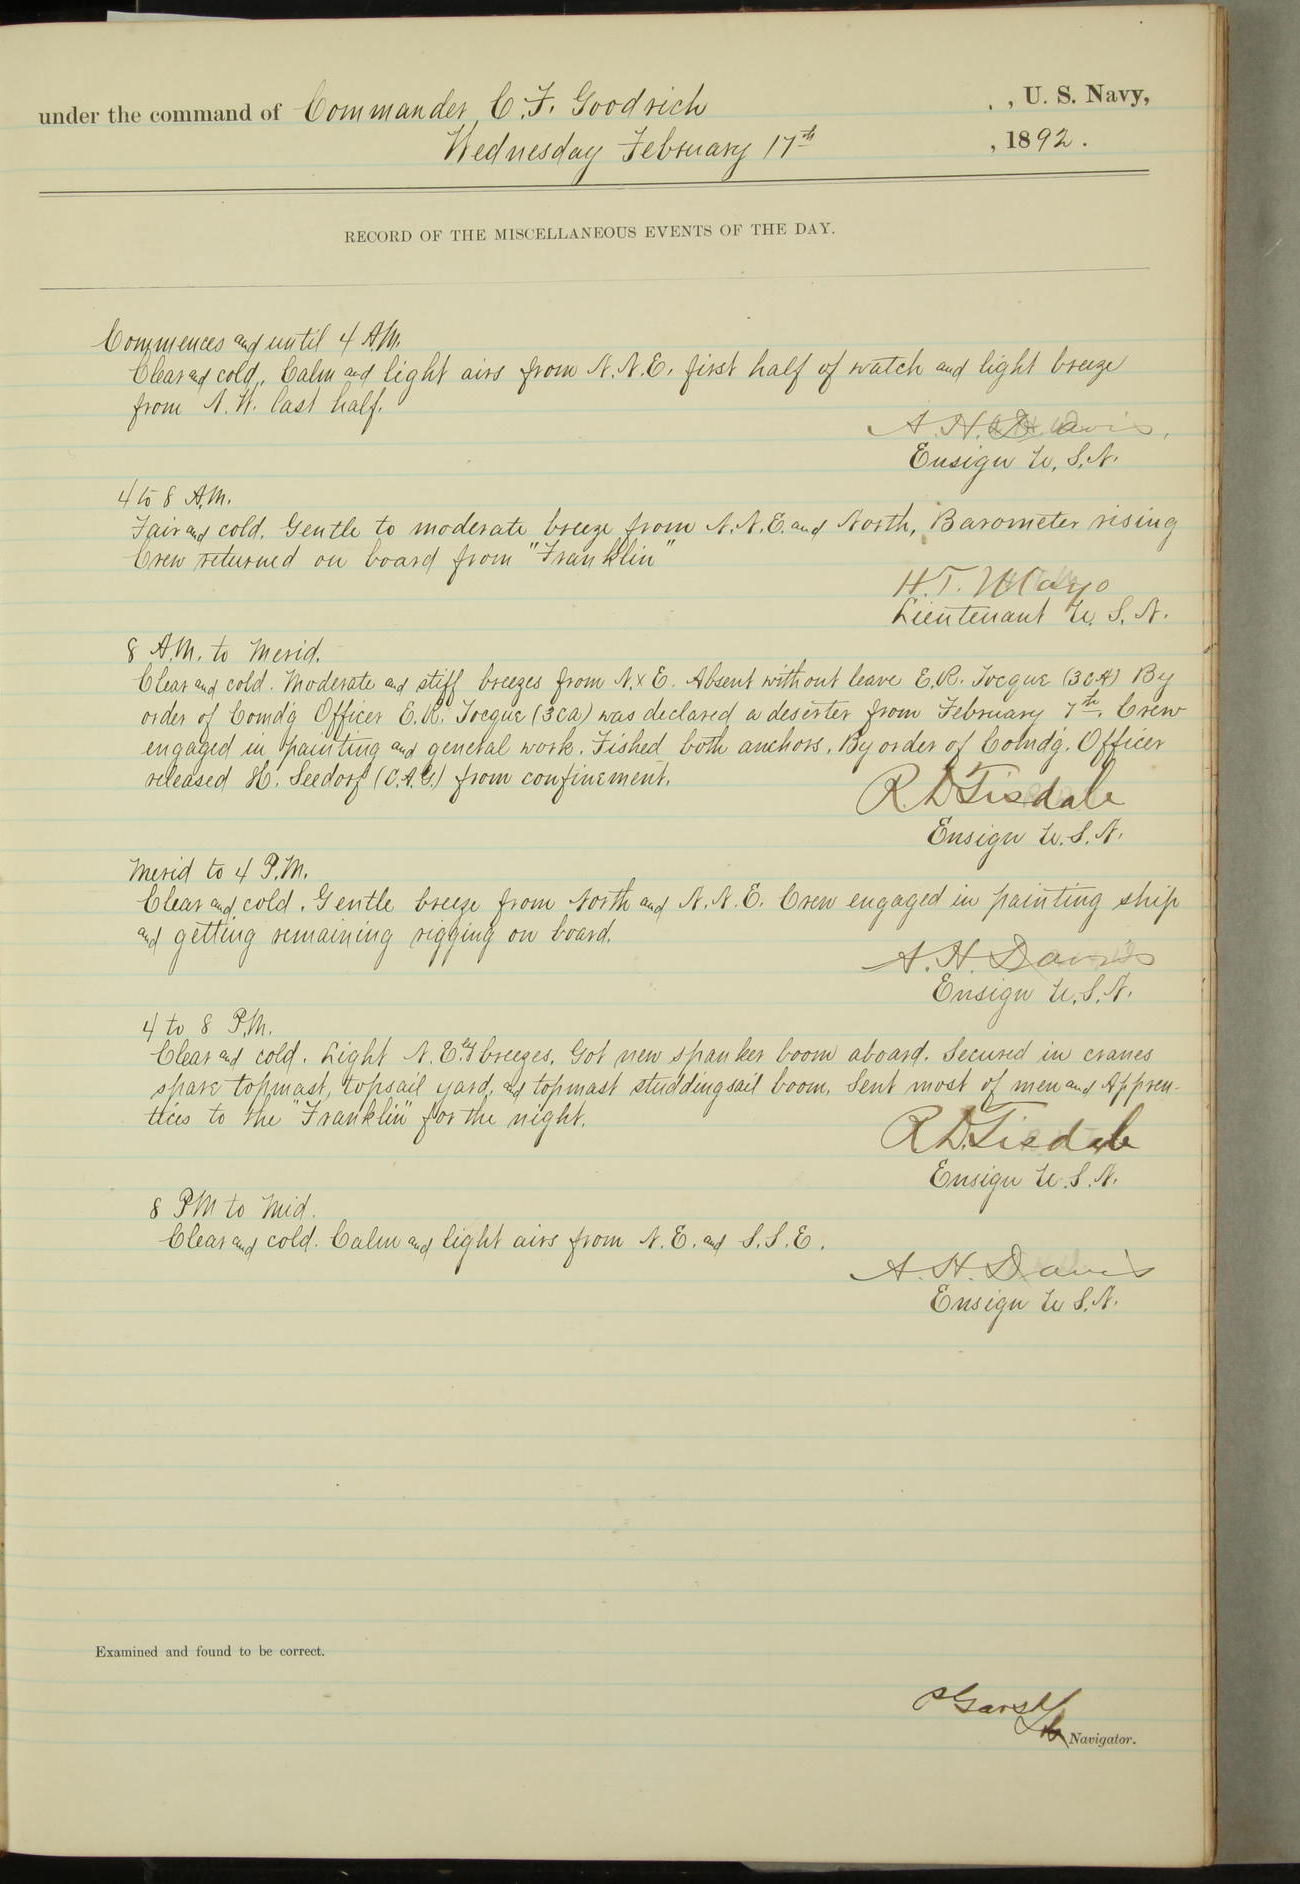 under the command of Commander C. F. Goodrich , U. S. Navy,
Wednesday February 17th , 1892.
RECORD OF THE MISCELLANEOUS EVENTS OF THE DAY.
Commences and until 4 A.M.
Clear and cold. Calm and light airs from N.N.E. first half of watch and light breeze
from N.W. last half.
A. H. Davis,
Ensign U.S.N.
4 to 8 A.M.
Fair and cold. Gentle to moderate breeze from N.N.E. and North, Barometer rising
Crew returned on board from "Franklin"
H. T. Mayo
Lieutenant U.S.N.
8 A.M. to Merid.
Clear and cold. Moderate and stiff breezes from N.xE. Absent without leave E.R. Tocque (3CA) By
order of Comd'g Officer E.R. Tocque (3CA) was declared a deserter from February 7th. Crew
engaged in painting and general work. Fished both anchors. By order of Comd'g. Officer
released H. Seedorf (C.A.G.) from confinement.
R. D. Tisdale
Ensign U.S.N.
Merid to 4 P.M.
Clear and cold. Gentle breeze from North and N.N.E. Crew engaged in painting ship
and getting remaining rigging on board.
A. H. Davis
Ensign U.S.N.
4 to 8 P.M.
Clear and cold. Light N.E'ly breezes. Got new spanker boom aboard. Secured in cranes
spare topmast, topsail yard, and topmast studdingsail boom. Sent most of men and Appren-
tices to the "Franklin" for the night.
R. D. Tisdale
Ensign U.S.N.
8 PM to Mid.
Clear and cold. Calm and light airs from N.E. and S.S.E.
A. H. Davis
Ensign U.S.N.
Examined and found to be correct.
Garst
Navigator.